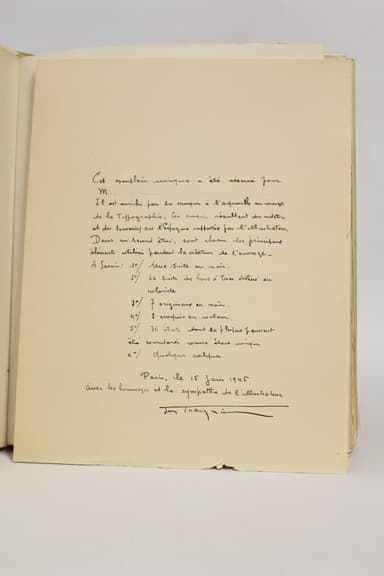 Cet exemplaire unique a été réservé pour
M
Il est enrichi par 20 croquis à l'aquarelle en marge
de la Typographie. Ces croquis résultent des notes
et des souvenirs sur l'Espagne rapportés par l'illustrateur.
Dans un second étui, sont classés les principaux
éléments utilisés pendant la création de l'ouvrage.
A Savoir: 1°/ Une suite en noir.
2°/ La suite des hors à texte
3°/ 7 originaux en noir.
4°/ 8 croquis en couleur
5°/ 36 états dont la plupart peuvent
être considérés comme étant unique
6°/ Quelques calques.
Paris, le 15 Juin 1945
avec les hommages et la sympathie de l'illustrateur